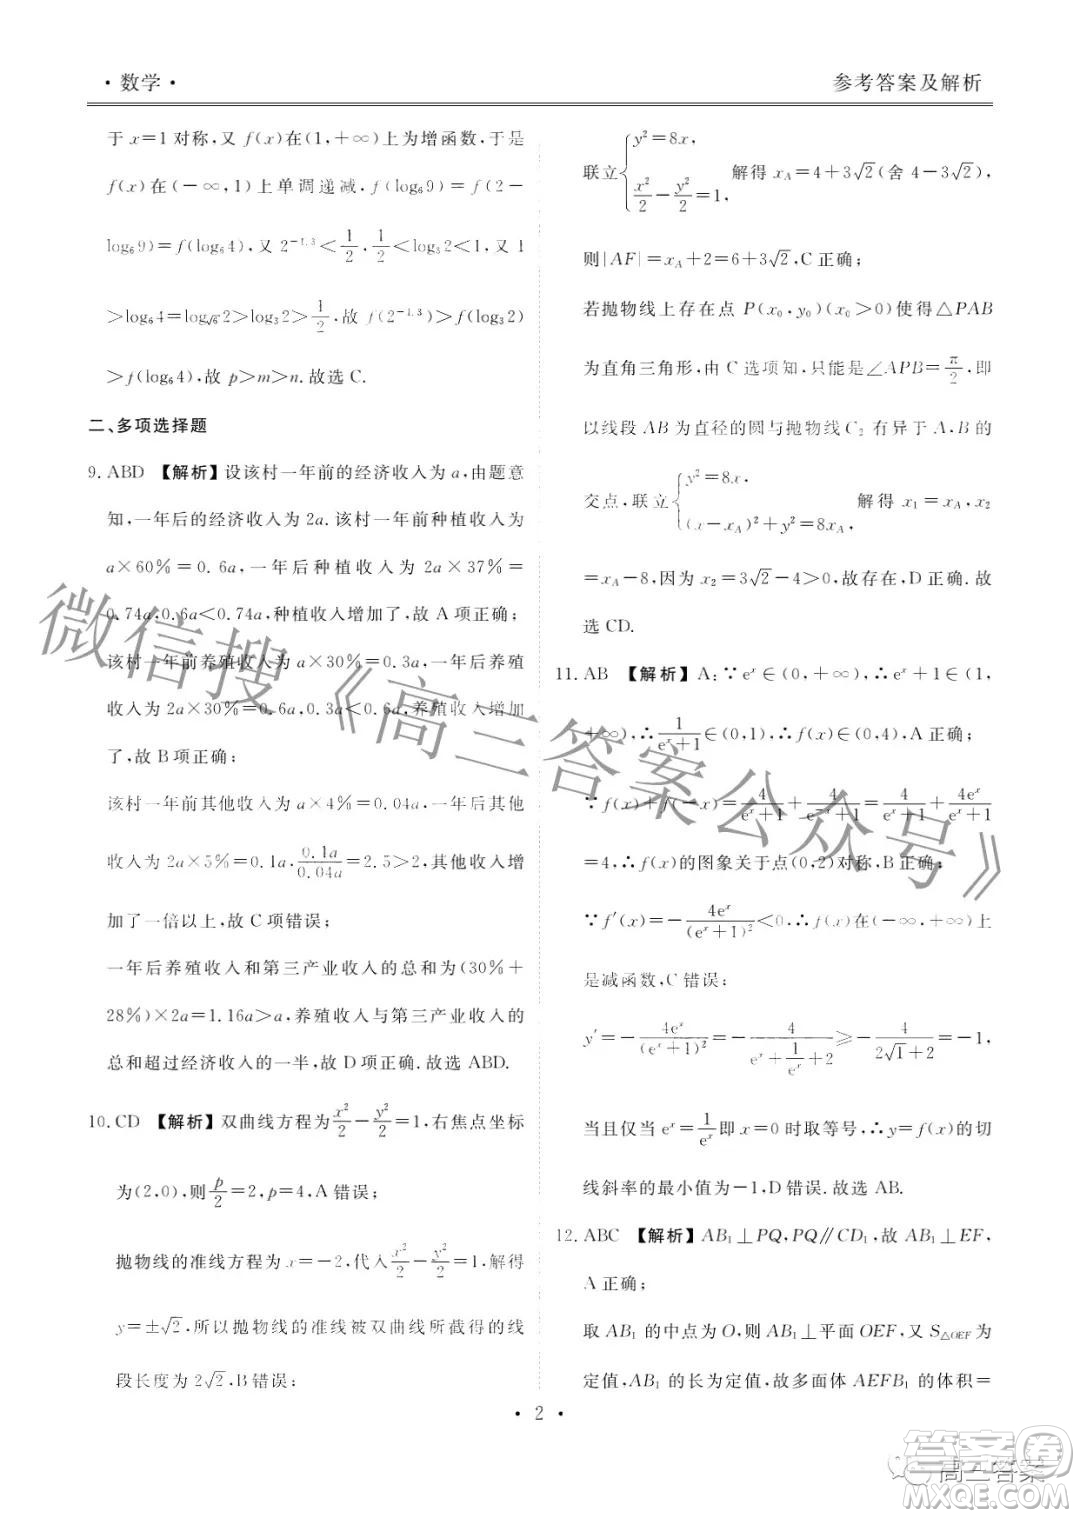 ·数学·
参考答案及解析
于 x=1 对称,又 f(x)在(1,+∞)上为增函数,于是
f(x)在(-∞,1)上单调递减,f(log₆9)=f(2-
log₆9)=f(log₆4),又 2^{-1.3}<1/2,1/2<log₃2<1,又 1
>log₆4=log_{√6}2>log₃2>1/2,故 f(2^{-1.3})>f(log₃2)
>f(log₆4),故 p>m>n.故选 C.
二、多项选择题
9. ABD 【解析】设该村一年前的经济收入为 a,由题意
知,一年后的经济收入为 2a.该村一年前种植收入为
a×60%=0.6a,一年后种植收入为 2a×37%=
0.74a,0.6a<0.74a,种植收入增加了,故 A 项正确;
该村一年前养殖收入为 a×30%=0.3a,一年后养殖
收入为 2a×30%=0.6a,0.3a<0.6a,养殖收入增加
了,故 B 项正确;
该村一年前其他收入为 a×4%=0.04a,一年后其他
收入为 2a×5%=0.1a,0.1a/0.04a=2.5>2,其他收入增
加了一倍以上,故 C 项错误;
一年后养殖收入和第三产业收入的总和为(30%+
28%)×2a=1.16a>a,养殖收入与第三产业收入的
总和超过经济收入的一半,故 D 项正确.故选 ABD.
10. CD 【解析】双曲线方程为 x²/2-y²/2=1,右焦点坐标
为(2,0),则 p/2=2,p=4,A 错误;
抛物线的准线方程为 x=-2,代入 x²/2-y²/2=1,解得
y=±√2,所以抛物线的准线被双曲线所截得的线
段长度为 2√2,B 错误;
联立{y²=8x, x²/2-y²/2=1, 解得 x_A=4+3√2(舍 4-3√2),
则|AF|=x_A+2=6+3√2,C 正确;
若抛物线上存在点 P(x₀,y₀)(x₀>0)使得△PAB
为直角三角形,由 C 选项知,只能是∠APB=π/2,即
以线段 AB 为直径的圆与抛物线 C₂ 有异于 A,B 的
交点,联立{y²=8x, (x-x_A)²+y²=8x_A, 解得 x₁=x_A,x₂
=x_A-8,因为 x₂=3√2-4>0,故存在,D 正确.故
选 CD.
11. AB 【解析】A:∵eˣ∈(0,+∞),∴eˣ+1∈(1,
+∞),∴1/(eˣ+1)∈(0,1),∴f(x)∈(0,4),A 正确;
∵f(x)+f(-x)=4/(eˣ+1)+4/(e⁻ˣ+1)=4/(eˣ+1)+4eˣ/(eˣ+1)
=4,∴f(x)的图象关于点(0,2)对称,B 正确;
∵f′(x)=-4eˣ/(eˣ+1)²<0,∴f(x)在(-∞,+∞)上
是减函数,C 错误;
y′=-4eˣ/(eˣ+1)²=-4/(eˣ+1/eˣ+2)≥-4/(2√1+2)=-1,
当且仅当 eˣ=1/eˣ 即 x=0 时取等号,∴y=f(x)的切
线斜率的最小值为-1,D 错误.故选 AB.
12. ABC 【解析】AB₁⊥PQ,PQ∥CD₁,故 AB₁⊥EF,
A 正确;
取 AB₁ 的中点为 O,则 AB₁⊥平面 OEF,又 S△OEF 为
定值,AB₁ 的长为定值,故多面体 AEFB₁ 的体积=
·2·
微信搜《高三答案公众号》
高三答案
答案圈
MXQE.COM